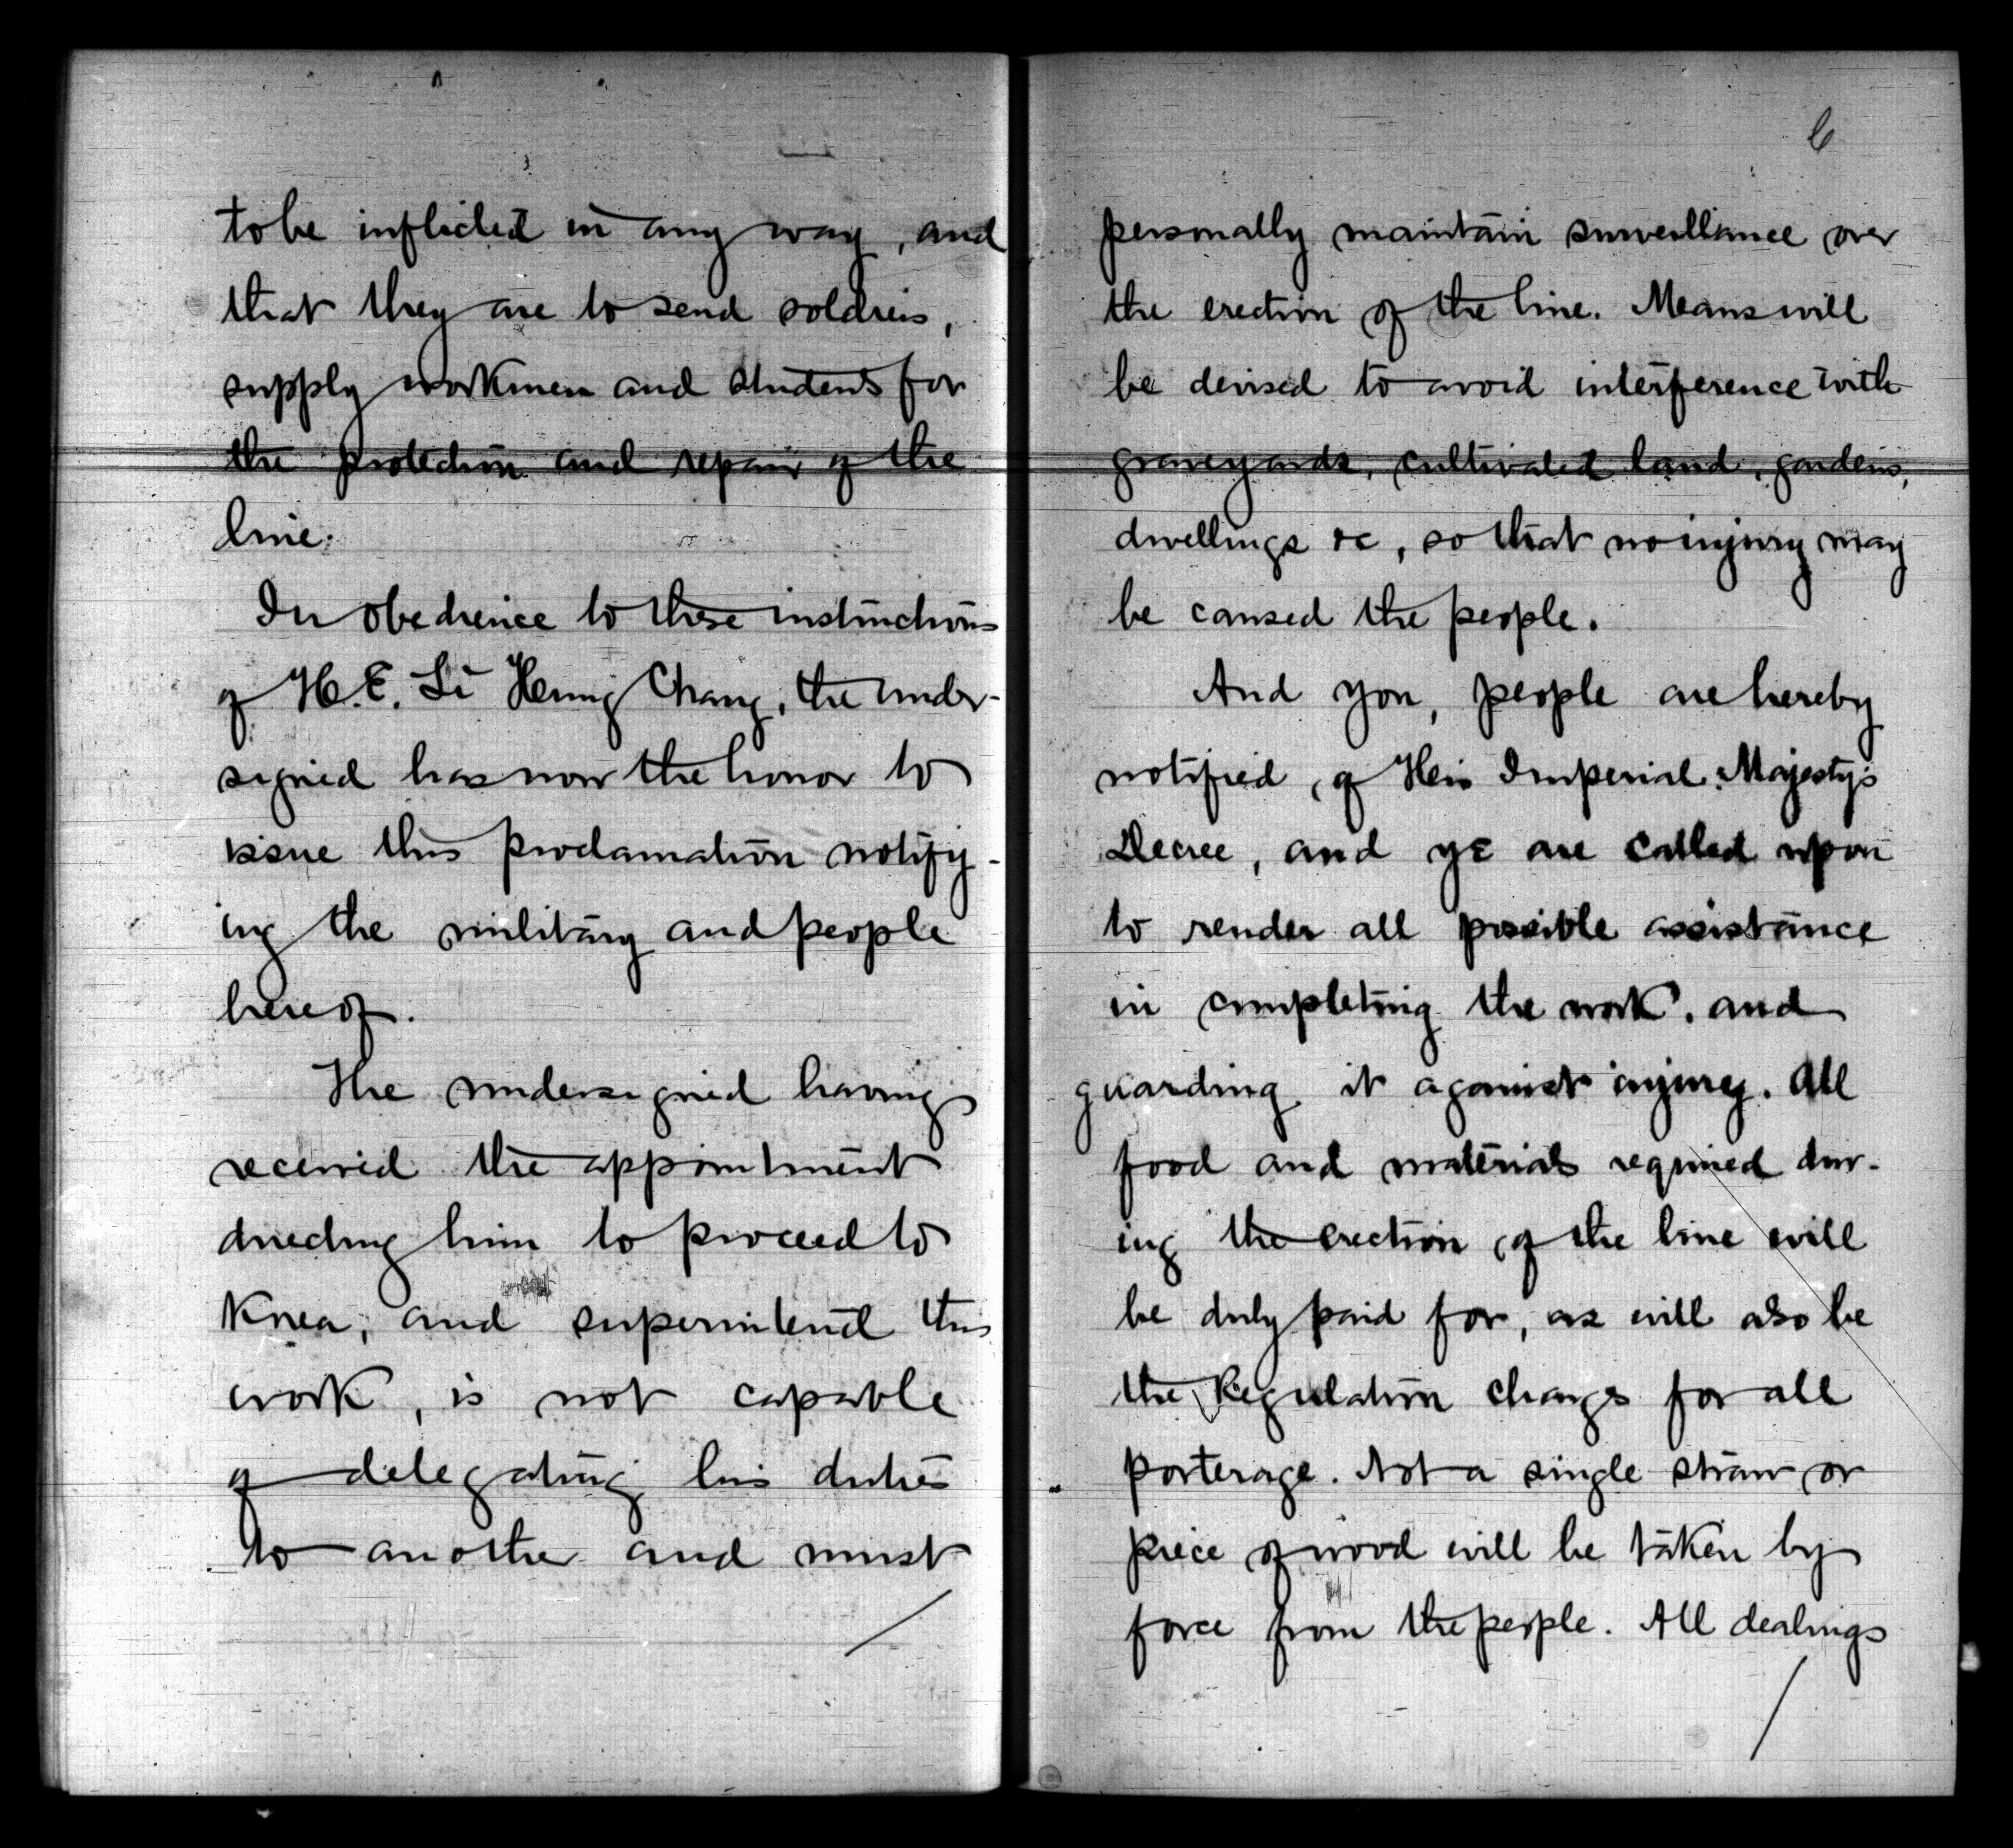 to be inflicted in any way, and
that they are to send soldiers,
supply workmen and students for
the protection and repair of the
line.
In obedience to these instructions
of H.E. Li Hung Chang, the under-
signed has now the honor to
issue this proclamation notify-
ing the military and people
hereof.
The undersigned having
received the appointment
directing him to proceed to
Korea, and superintend this
work, is not capable
of delegating his duties
to another and must
6
personally maintain surveillance over
the erection of the line. Means will
be devised to avoid interference with
graveyards, cultivated land, gardens,
dwellings &c, so that no injury may
be caused the people.
And you, people are hereby
notified, of His Imperial Majesty's
Decree, and ye are called upon
to render all possible assistance
in completing the work, and
guarding it against injury. All
food and materials required dur-
ing the erection of the line will
be duly paid for, as will also be
the Regulation charges for all
porterage. Not a single straw or
piece of wood will be taken by
force from the people. All dealings